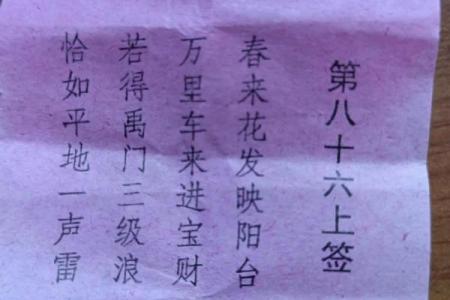 第八十六上签
春来花发映阳台
万里车来进宝财
若得禹门三级浪
恰如平地一声雷